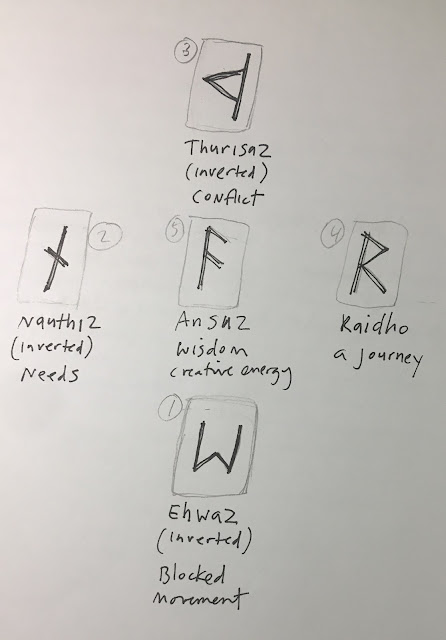 3
Thurisaz
(inverted)
conflict
2
5
4
Nauthiz
(inverted)
Needs
Ansuz
wisdom
creative energy
Raidho
a Journey
1
Ehwaz
(inverted)
Blocked
movement